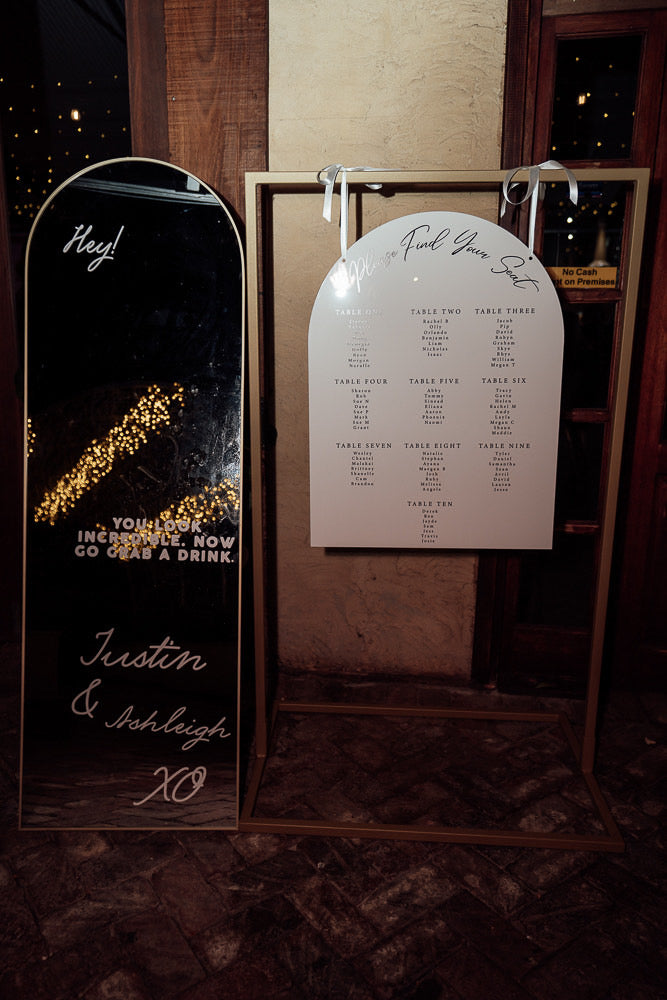 Hey!
YOU LOOK
INCREDIBLE. NOW
GO GRAB A DRINK.
Justin
&
Ashleigh
XO
Please Find Your Seat
TABLE ONE
Morgan
TABLE TWO
Rachel B
Olly
Orlando
Benjamin
Liam
Nicholas
Isaac
TABLE THREE
Jacob
Pip
David
Robyn
Graham
Skye
Rhys
William
Megan T
TABLE FOUR
Sharon
Rob
Sue N
Dave
Sue P
Mark
Sue M
Grant
TABLE FIVE
Abby
Tommy
Sinead
Eliana
Aaron
Phoenix
Naomi
TABLE SIX
Tracy
Gavin
Helen
Rachel M
Andy
Layla
Megan C
Shaun
Maddie
TABLE SEVEN
Wesley
Chantel
Malakai
Brittney
Shanelle
Cam
Brandon
TABLE EIGHT
Natalie
Stephan
Ayana
Morgan B
Josh
Ruby
Melissa
Angela
TABLE NINE
Tyler
Daniel
Samantha
Sean
Avril
David
Lauren
Jesse
TABLE TEN
Derek
Bev
Jayde
Sam
Jess
Travis
Josie
No Cash
on Premises